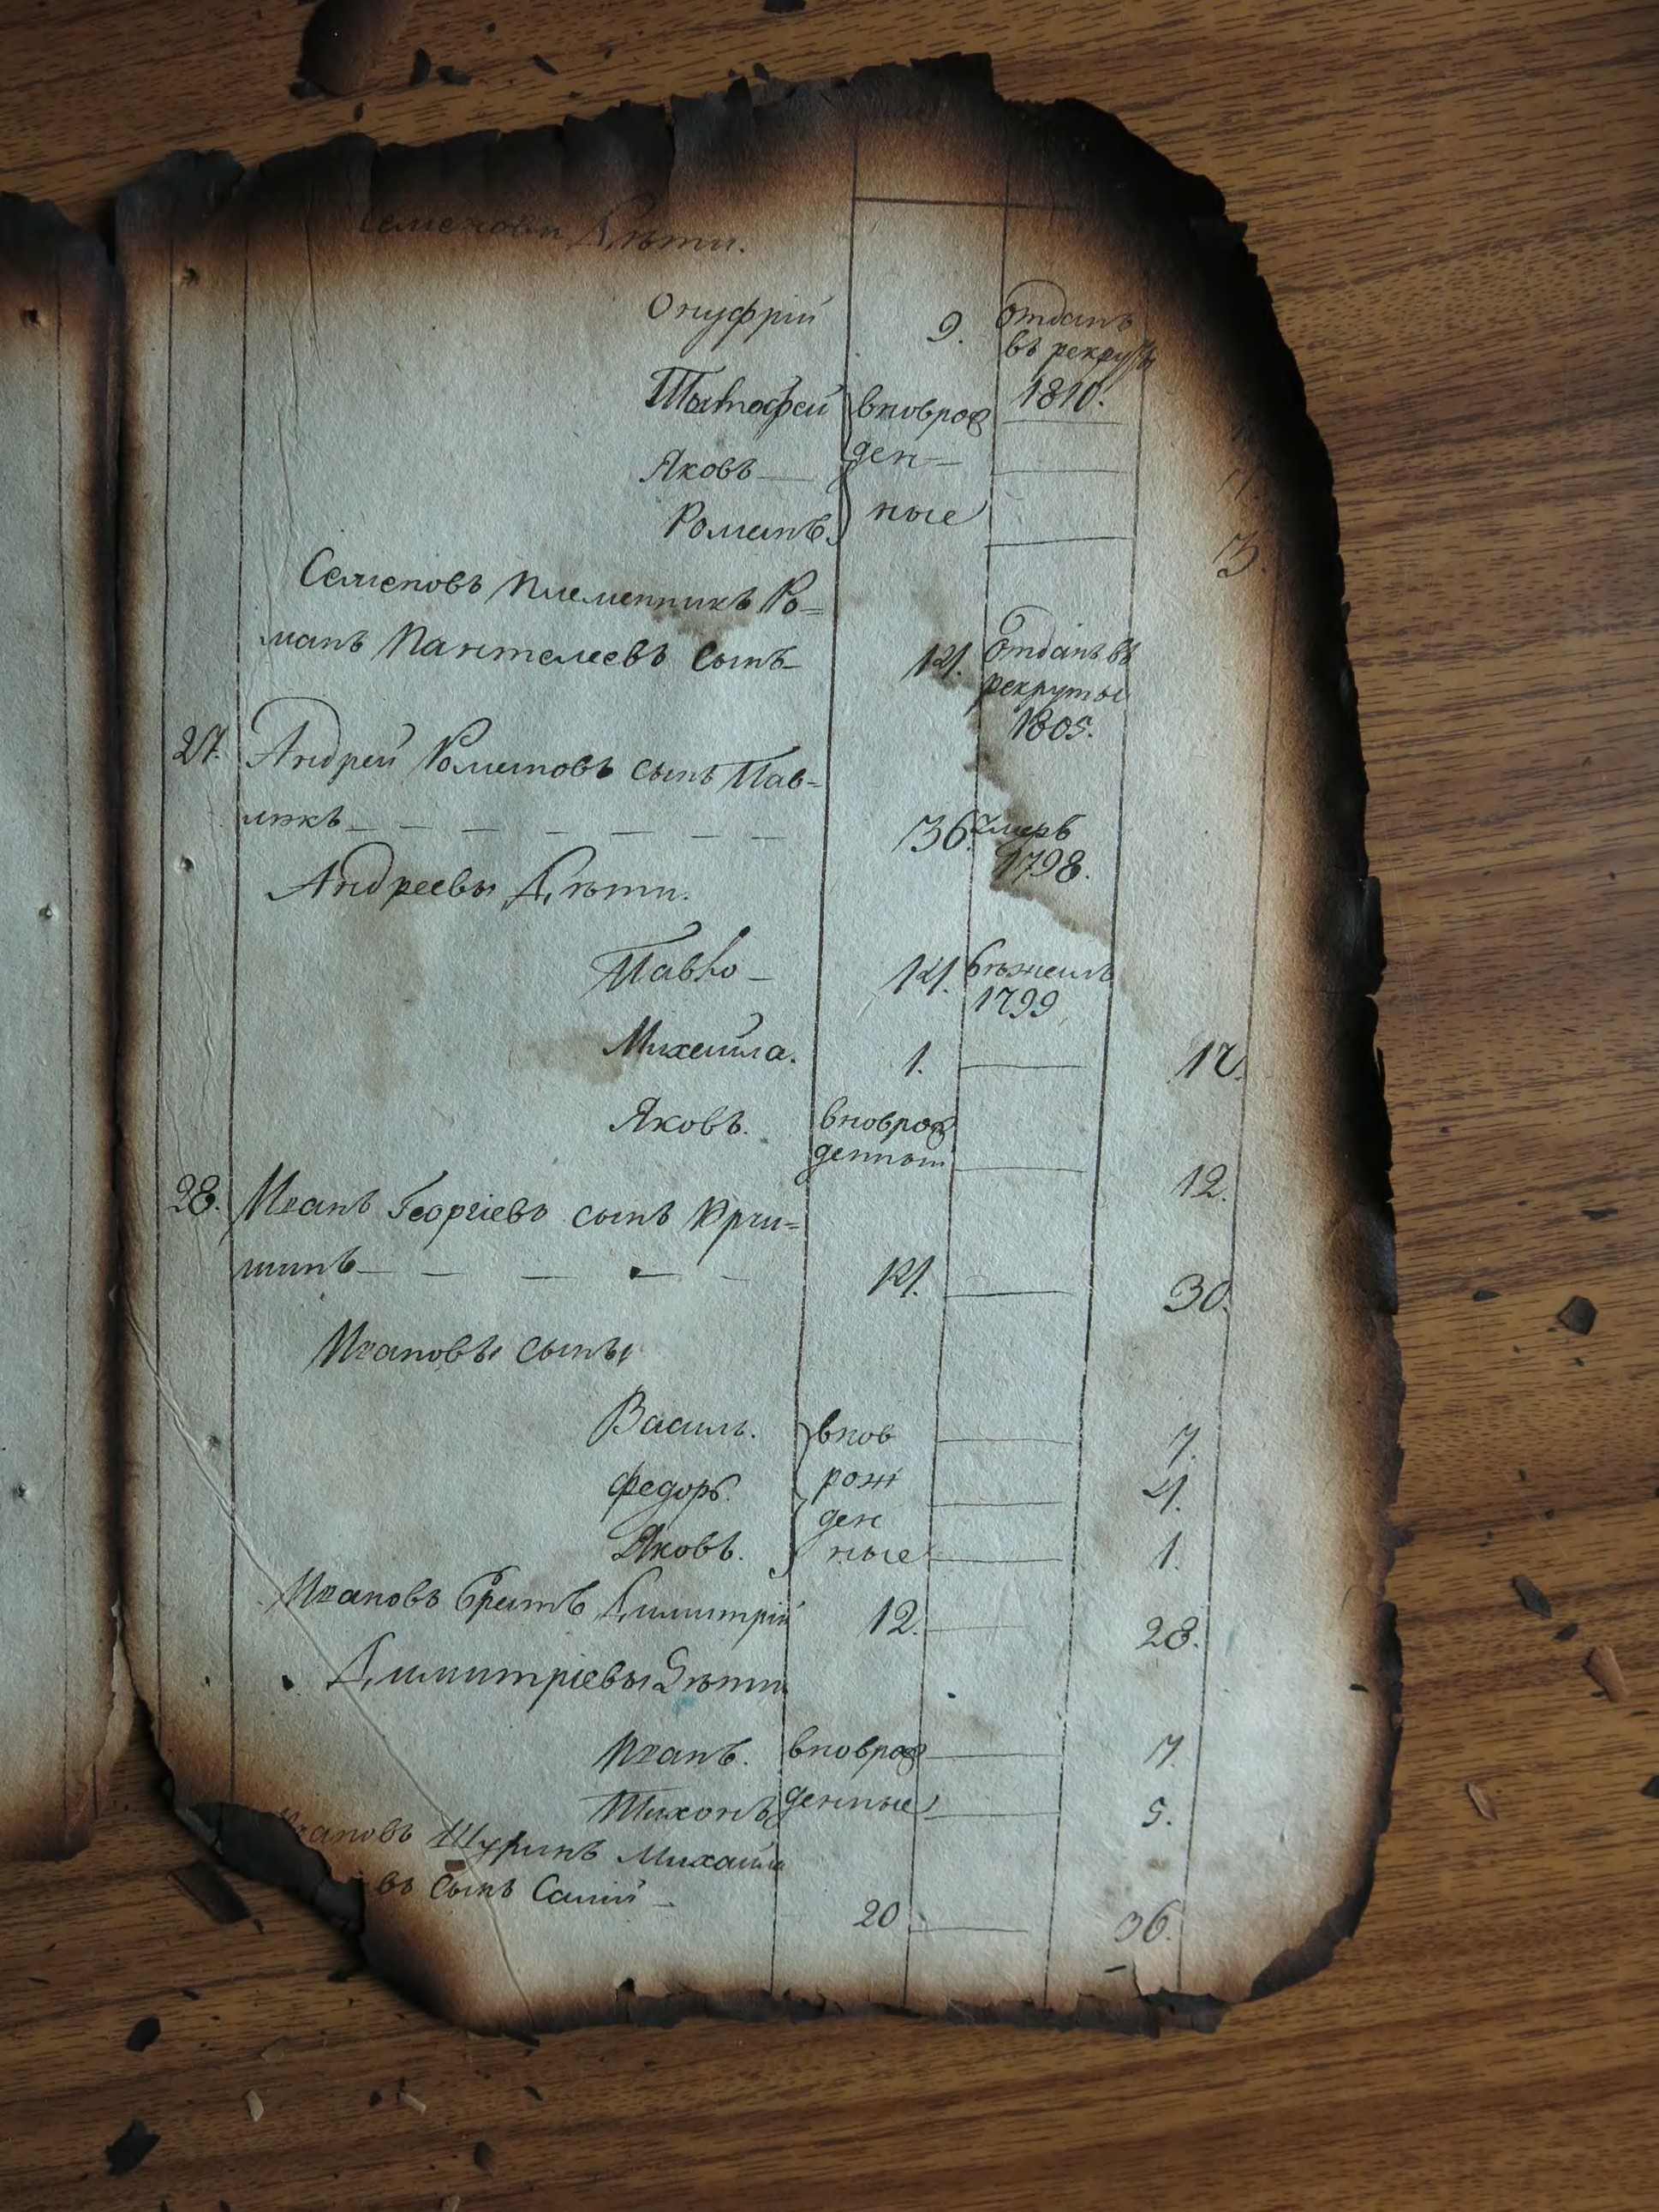 Семеновы Дѣти.
Онуфрій 9. отданъ
въ рекруты
1810.
Тымофей вноврож
Яковъ ден
Романъ ные 3.
Семеновъ племенникъ Ро=
манъ Пантелеевъ сынъ 14. отданъ въ
рекруты
1805.
27. Андрей Романовъ сынъ Пав=
люкъ 36. умеръ
1798.
Андреевы Дѣти.
Павло 14. бѣжалъ
1799
Михайла. 1. 17.
Яковъ. вноврож
денный 12.
28. Иванъ Георгіевъ сынъ Кри=
шинъ 14. 30.
Ивановы сыны
Василь. внов 7.
Федоръ. рож 4.
ден
Яковъ. ные 1.
Ивановъ братъ Димитрій 12. 28.
Димитріевы Дѣти
Иванъ. вноврож 7.
Тихонъ денные 5.
Ивановъ Шуринъ Михайла
въ сынъ Салій 20 36.